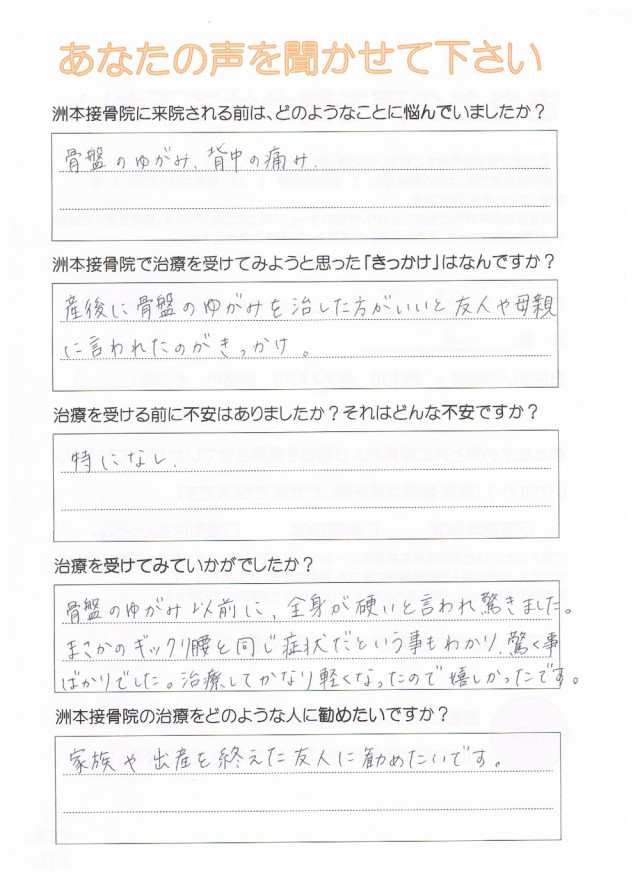 あなたの声を聞かせて下さい
洲本接骨院に来院される前は、どのようなことに悩んでいましたか？
骨盤のゆがみ、背中の痛み.
洲本接骨院で治療を受けてみようと思った「きっかけ」はなんですか？
産後に骨盤のゆがみを治した方がいいと友人や母親
に言われたのがきっかけ。
治療を受ける前に不安はありましたか？それはどんな不安ですか？
特になし.
治療を受けてみていかがでしたか？
骨盤のゆがみ以前に、全身が硬いと言われ驚きました。
まさかのギックリ腰と同じ症状だという事もわかり、驚く事
ばかりでした。治療してかなり軽くなったので嬉しかったです。
洲本接骨院の治療をどのような人に勧めたいですか？
家族や出産を終えた友人に勧めたいです。